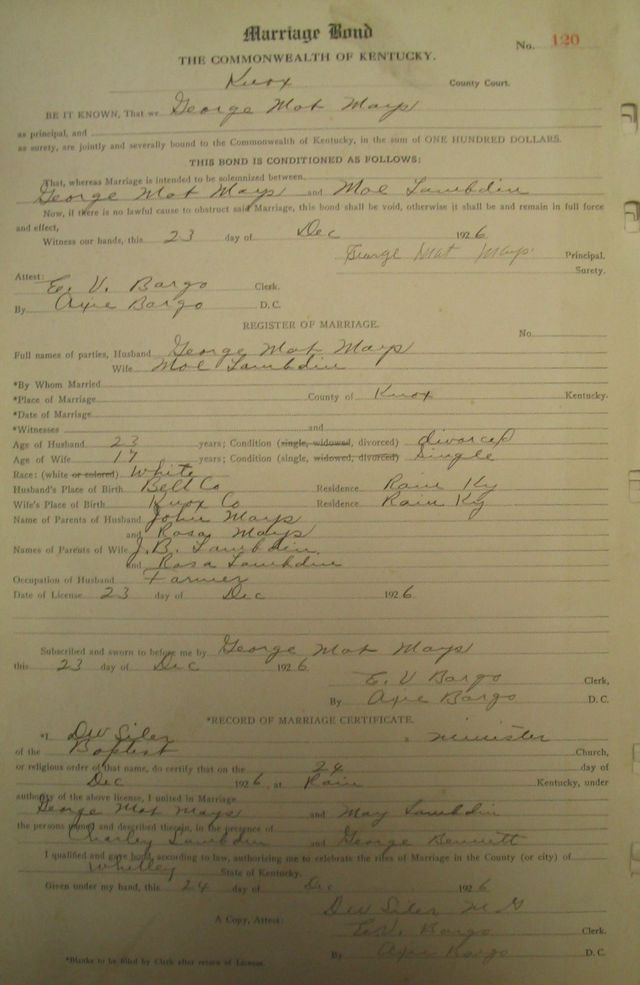 Marriage Bond
No. 120
THE COMMONWEALTH OF KENTUCKY.
Knox County Court.
BE IT KNOWN, That we George Mat Mays
as principal, and
as surety, are jointly and severally bound to the Commonwealth of Kentucky, in the sum of ONE HUNDRED DOLLARS.
THIS BOND IS CONDITIONED AS FOLLOWS:
That, whereas Marriage is intended to be solemnized between
George Mat Mays and Moe Lambdin
Now, if there is no lawful cause to obstruct said Marriage, this bond shall be void, otherwise it shall be and remain in full force
and effect,
Witness our hands, this 23 day of Dec 1926
George Mat Mays Principal.
Surety.
Attest:
E. V. Bargo Clerk.
By Axie Bargo D.C.
REGISTER OF MARRIAGE.
No.
Full names of parties, Husband George Mat Mays
Wife Moe Lambdin
*By Whom Married
*Place of Marriage County of Knox Kentucky.
*Date of Marriage
*Witnesses and
Age of Husband 23 years; Condition (single, widowed, divorced) divorced
Age of Wife 17 years; Condition (single, widowed, divorced) Single
Race: (white or colored) White
Husband's Place of Birth Bell Co Residence Rain Ky
Wife's Place of Birth Knox Co Residence Rain Ky
Name of Parents of Husband John Mays
and Rosa Mays
Names of Parents of Wife J.B. Lambdin
and Rosa Lambdin
Occupation of Husband Farmer
Date of License 23 day of Dec 1926
Subscribed and sworn to before me by George Mat Mays
this 23 day of Dec 1926
E. V Bargo Clerk,
By Axie Bargo D. C.
*RECORD OF MARRIAGE CERTIFICATE.
*I, DW Siler a minister
of the Baptist Church,
or religious order of that name, do certify that on the 24 day of
Dec 1926, at Rain Kentucky, under
authority of the above license, I united in Marriage
George Mat Mays and May Lambdin
the persons named and described therein, in the presence of
Charley Lambdin and George Bennett
I qualified and gave bond, according to law, authorizing me to celebrate the rites of Marriage in the County (or city) of
Whitley State of Kentucky.
Given under my hand, this 24 day of Dec 1926
DW Siler M G
A Copy, Attest: E.V. Bargo Clerk.
By Axie Bargo D. C.
*Blanks to be filed by Clerk after return of License.